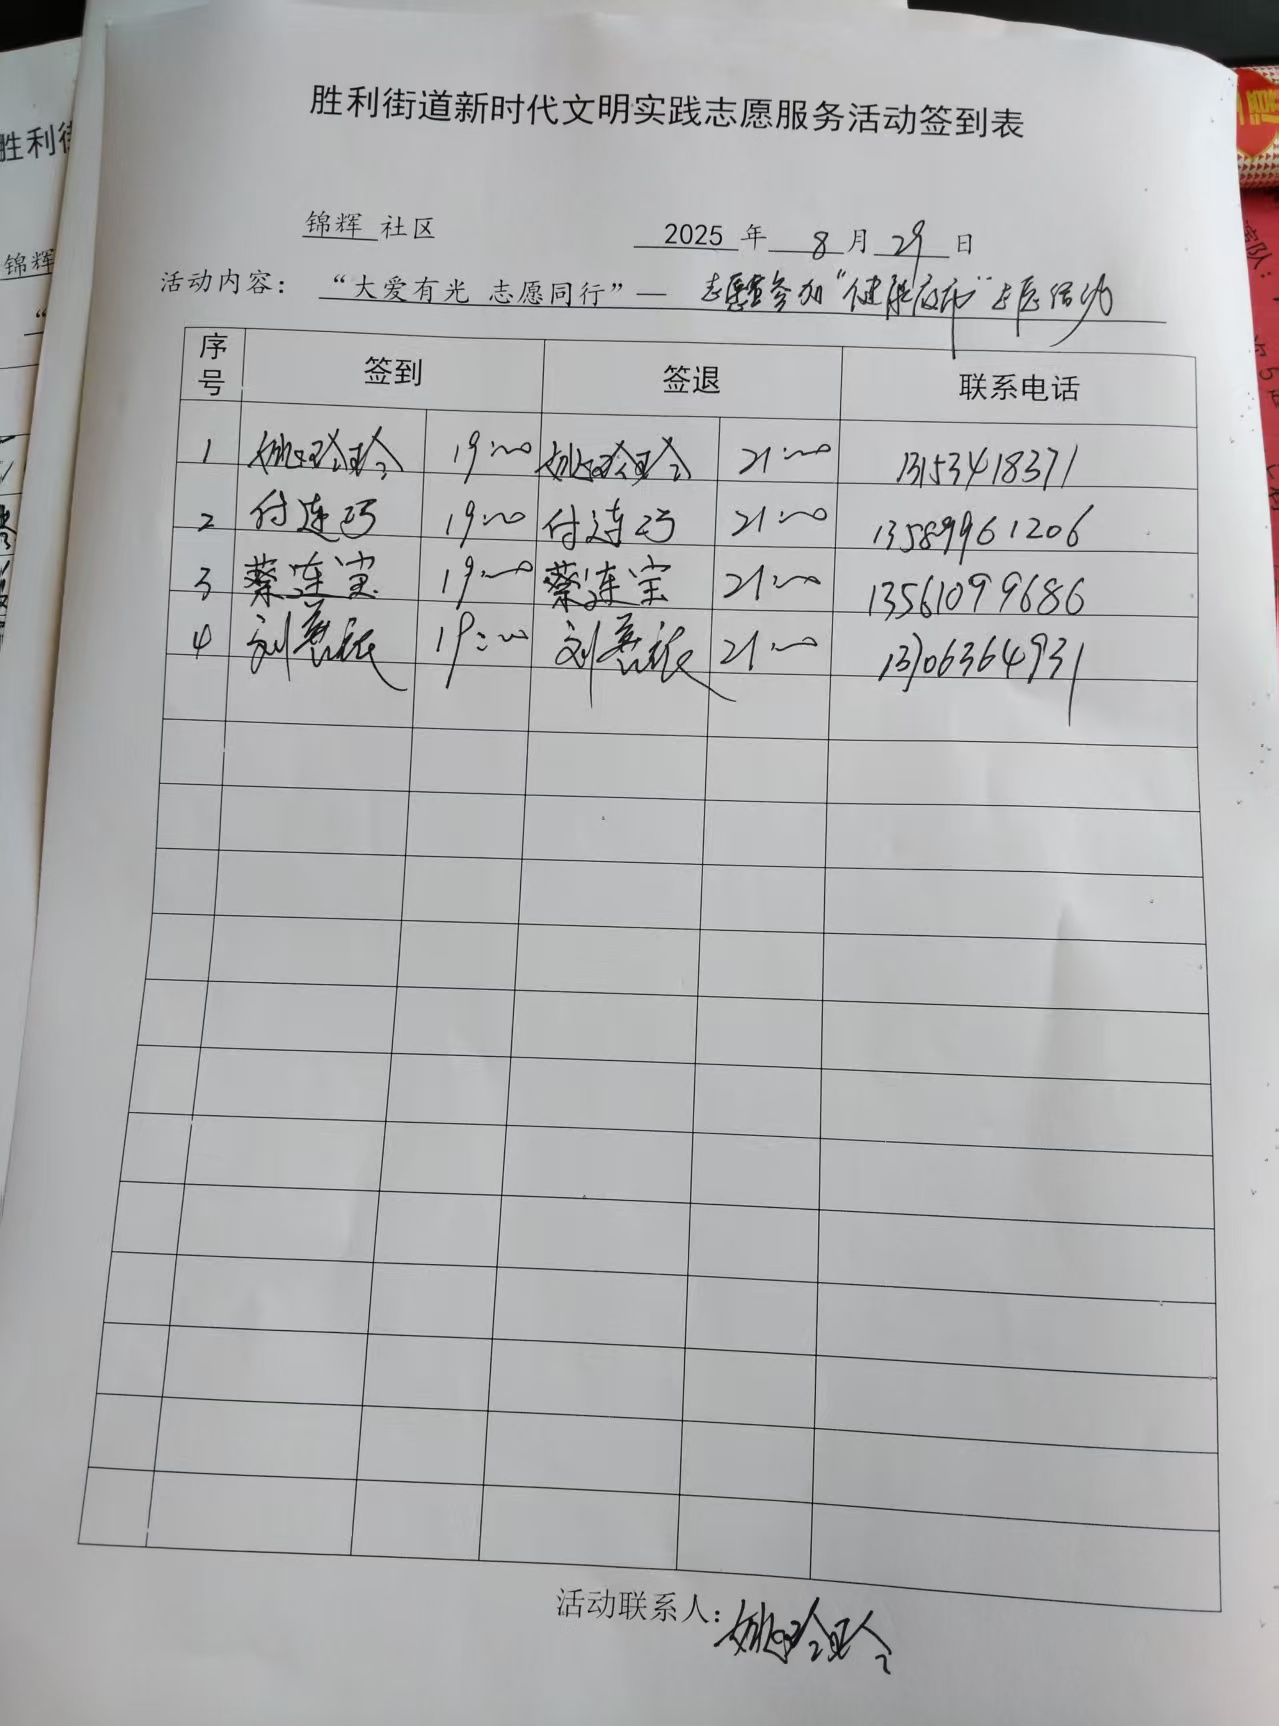 胜利街道新时代文明实践志愿服务活动签到表
锦辉 社区 2025 年 8 月 29 日
活动内容： “大爱有光 志愿同行”— 参加“健康夜市”志愿活动
序号 签到 签退 联系电话
1 姚玲玲 19:00 姚玲玲 21:00 13153418371
2 付连巧 19:00 付连巧 21:00 13589961206
3 蔡连宝 19:00 蔡连宝 21:00 13561099686
4 刘 19:00 刘 21:00 13706364931
活动联系人：姚玲玲
胜利街
锦辉